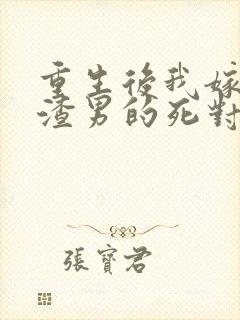 重生後我嫁
渣男的死對
張寶君